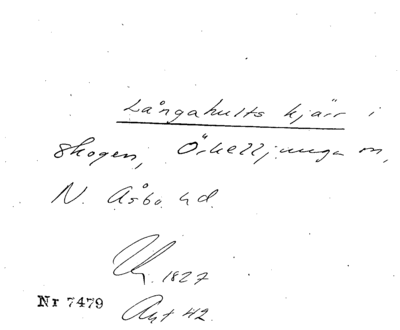 Långahults kjärr i
skogen, Örkelljunga sn,
N. Åsbo hd.
1827
Nr 7479
Akt 42